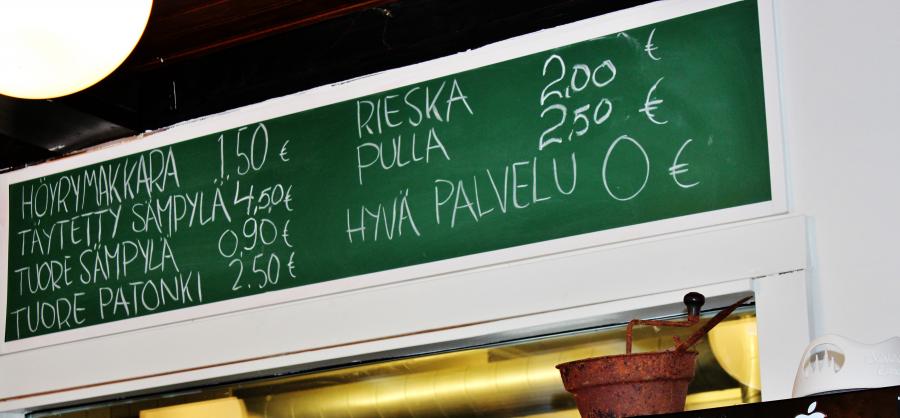 HÖYRYMAKKARA 1,50 €
TÄYTETTY SÄMPYLÄ 4,50 €
TUORE SÄMPYLÄ 0,90 €
TUORE PATONKI 2.50 €
RIESKA 2,00 €
PULLA 2,50 €
HYVÄ PALVELU 0 €